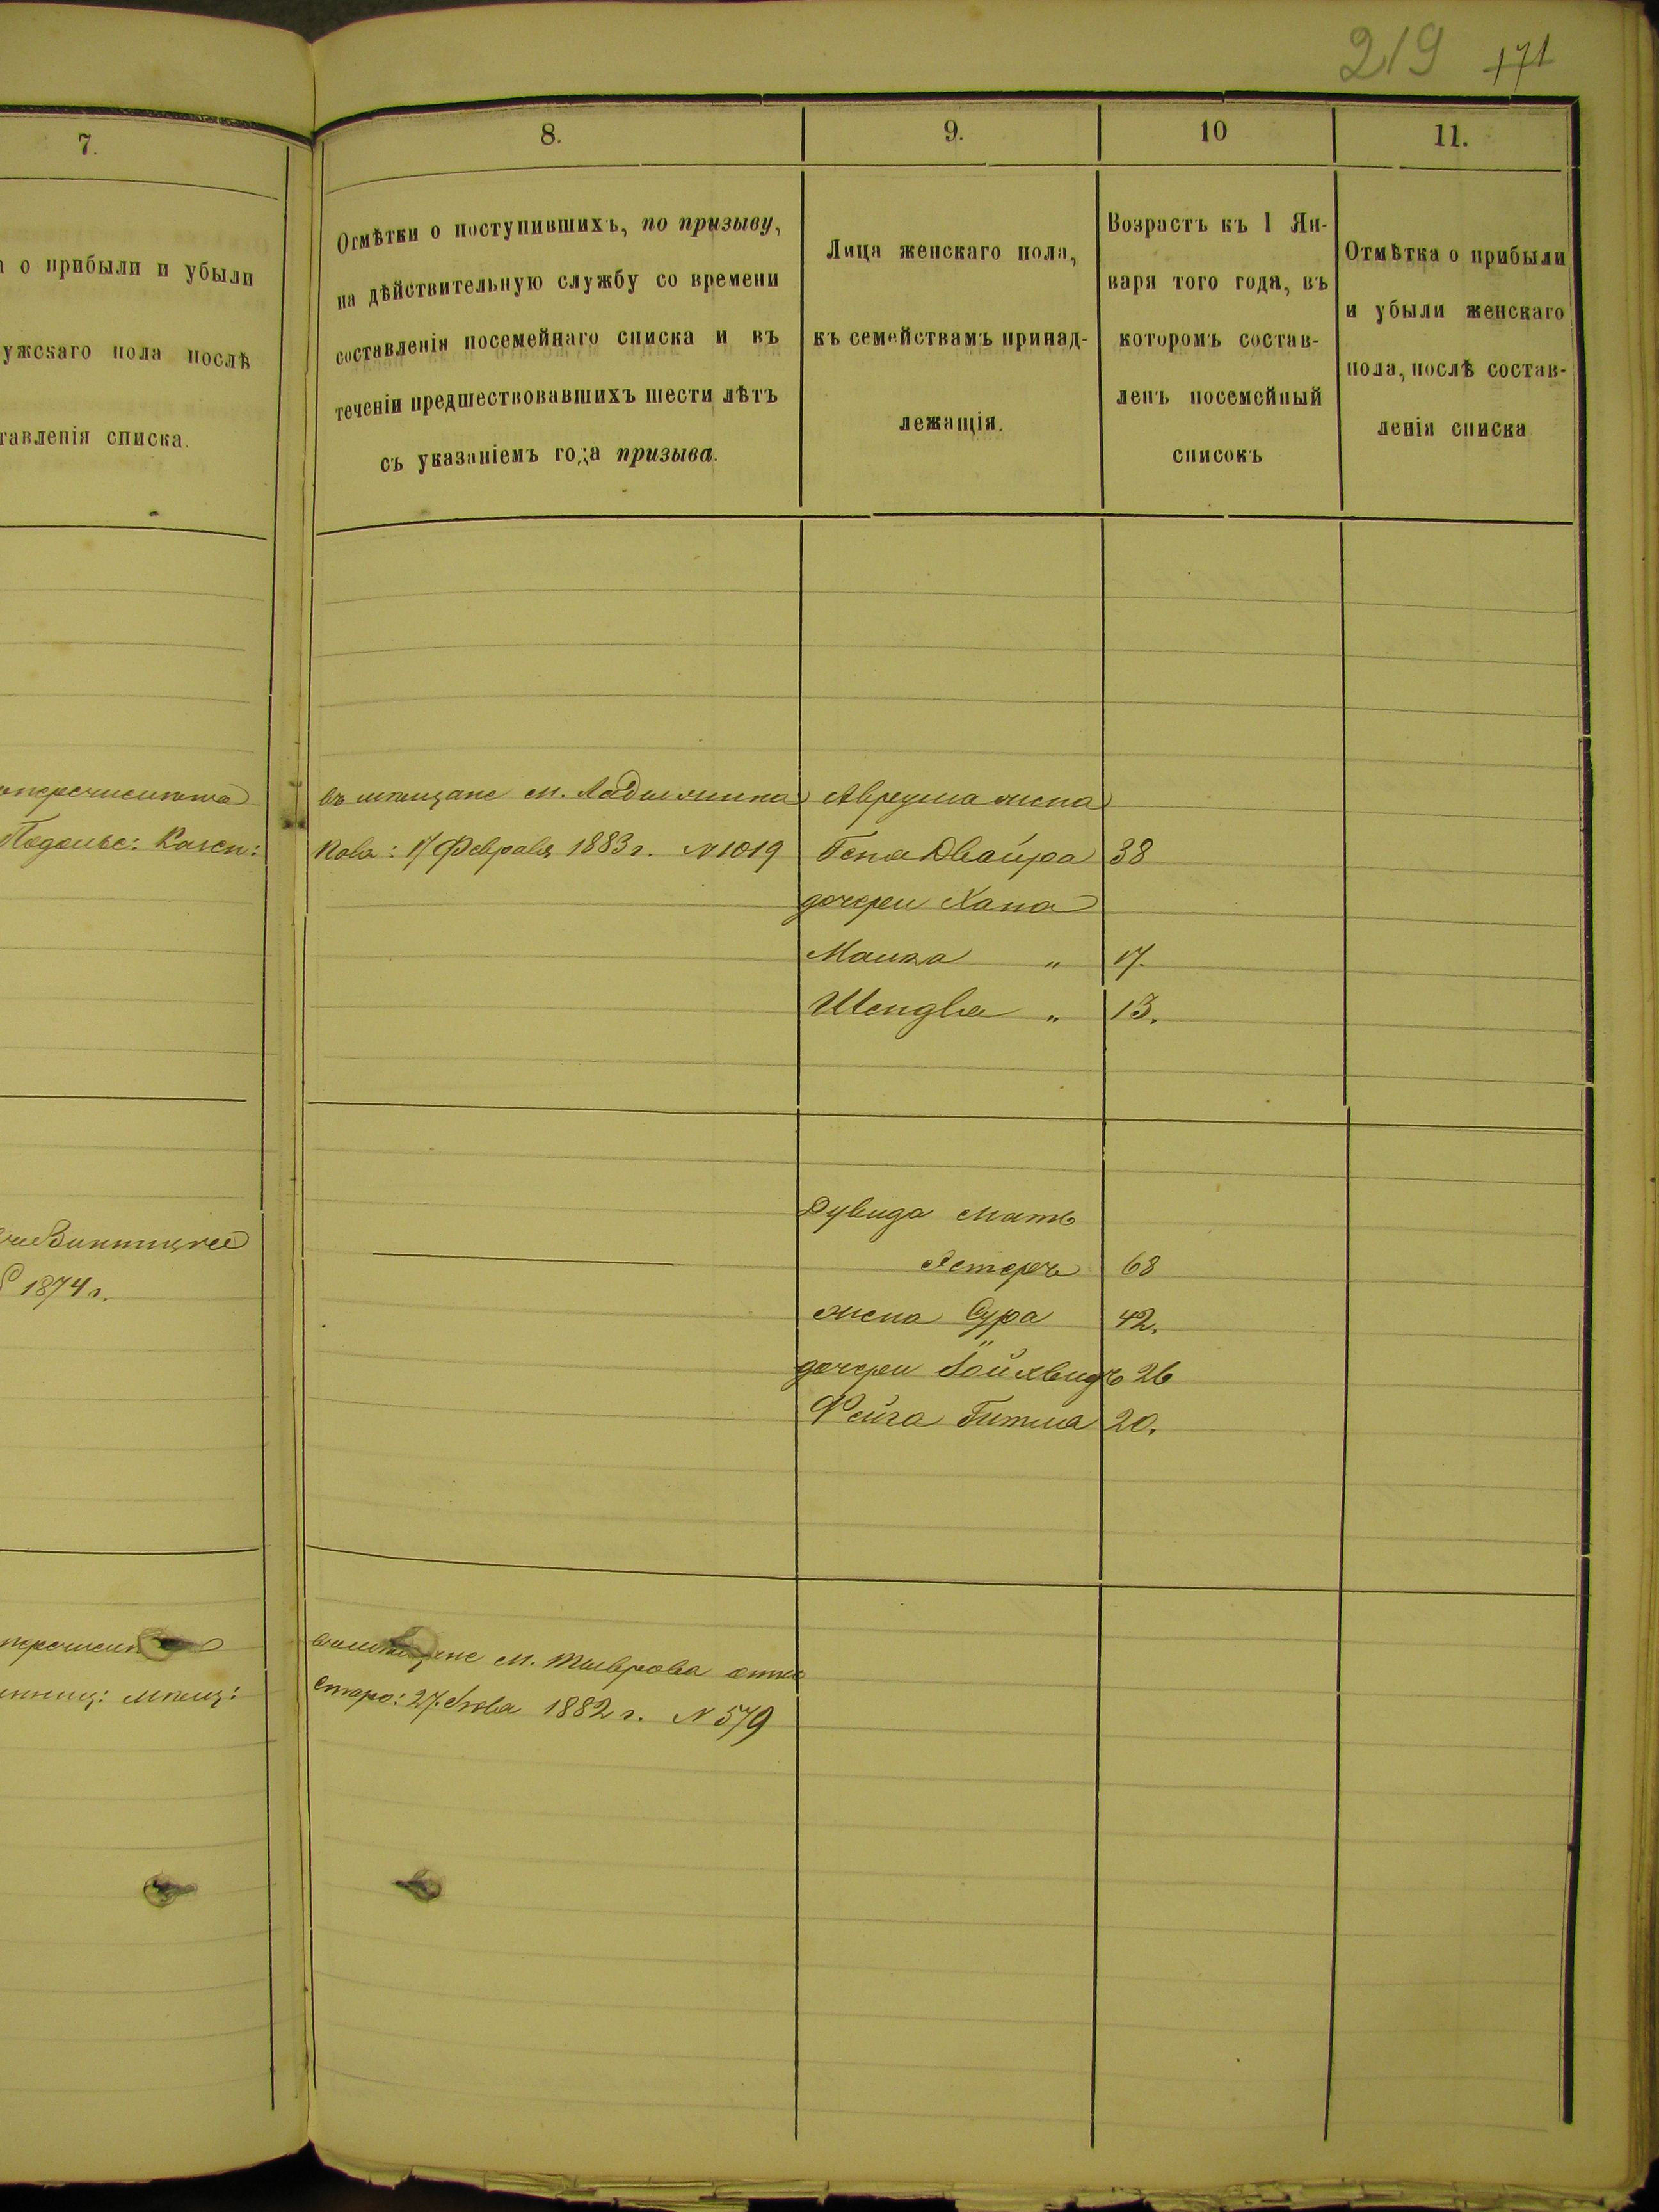 219 171
7.
8.
9.
10
11.
о прибыли и убыли
ужскаго пола послѣ
тавленія списка.
Отмѣтки о поступившихъ, по призыву,
на дѣйствительную службу со времени
составленія посемейнаго списка и въ
теченіи предшествовавшихъ шести лѣтъ
съ указаніемъ года призыва.
Лица женскаго пола,
къ семействамъ принад-
лежащія.
Возрастъ къ 1 Ян-
варя того года, въ
которомъ состав-
ленъ посемейный
списокъ
Отмѣтка о прибыли
и убыли женскаго
пола, послѣ состав-
ленія списка
Подольс: Казен:
въ мѣщане м.
17 Февраля 1883 г. N 1019
Аврума жена
Гена Двойра 38
дочери Хана
Малка " 17.
Шендля " 13.
Винницкее
1874 г.
Дувида мать
Эстеръ 68
жена Сура 42.
дочери 26
Фейга Гитля 20.
мѣщ:
м. Тыврова
27 1882 г. N 579